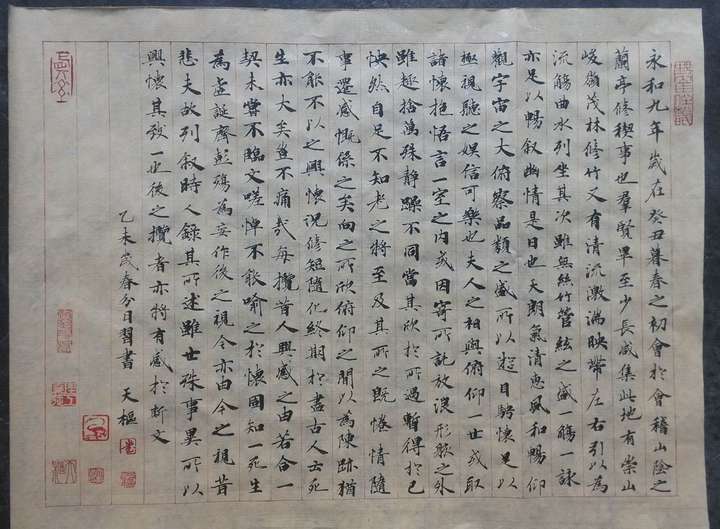 永和九年歲在癸丑暮春之初會於會稽山陰之
蘭亭修稧事也羣賢畢至少長咸集此地有崇山
峻嶺茂林修竹又有清流激湍映帶左右引以為
流觴曲水列坐其次雖無絲竹管絃之盛一觴一詠
亦足以暢叙幽情是日也天朗氣清惠風和暢仰
觀宇宙之大俯察品類之盛所以遊目騁懷足以
極視聽之娛信可樂也夫人之相與俯仰一世或取
諸懷抱悟言一室之內或因寄所託放浪形骸之外
雖趣捨萬殊靜躁不同當其欣於所遇暫得於己
怏然自足不知老之將至及其所之既惓情隨
事遷感慨係之矣向之所欣俯仰之間以為陳跡猶
不能不以之興懷況修短隨化終期於盡古人云死
生亦大矣豈不痛哉每攬昔人興感之由若合一
契未嘗不臨文嗟悼不能喻之於懷固知一死生
為虛誕齊彭殤為妄作後之視今亦由今之視昔
悲夫故列叙時人錄其所述雖世殊事異所以
興懷其致一也後之攬者亦將有感於斯文
乙未歲春分日習書 天樞